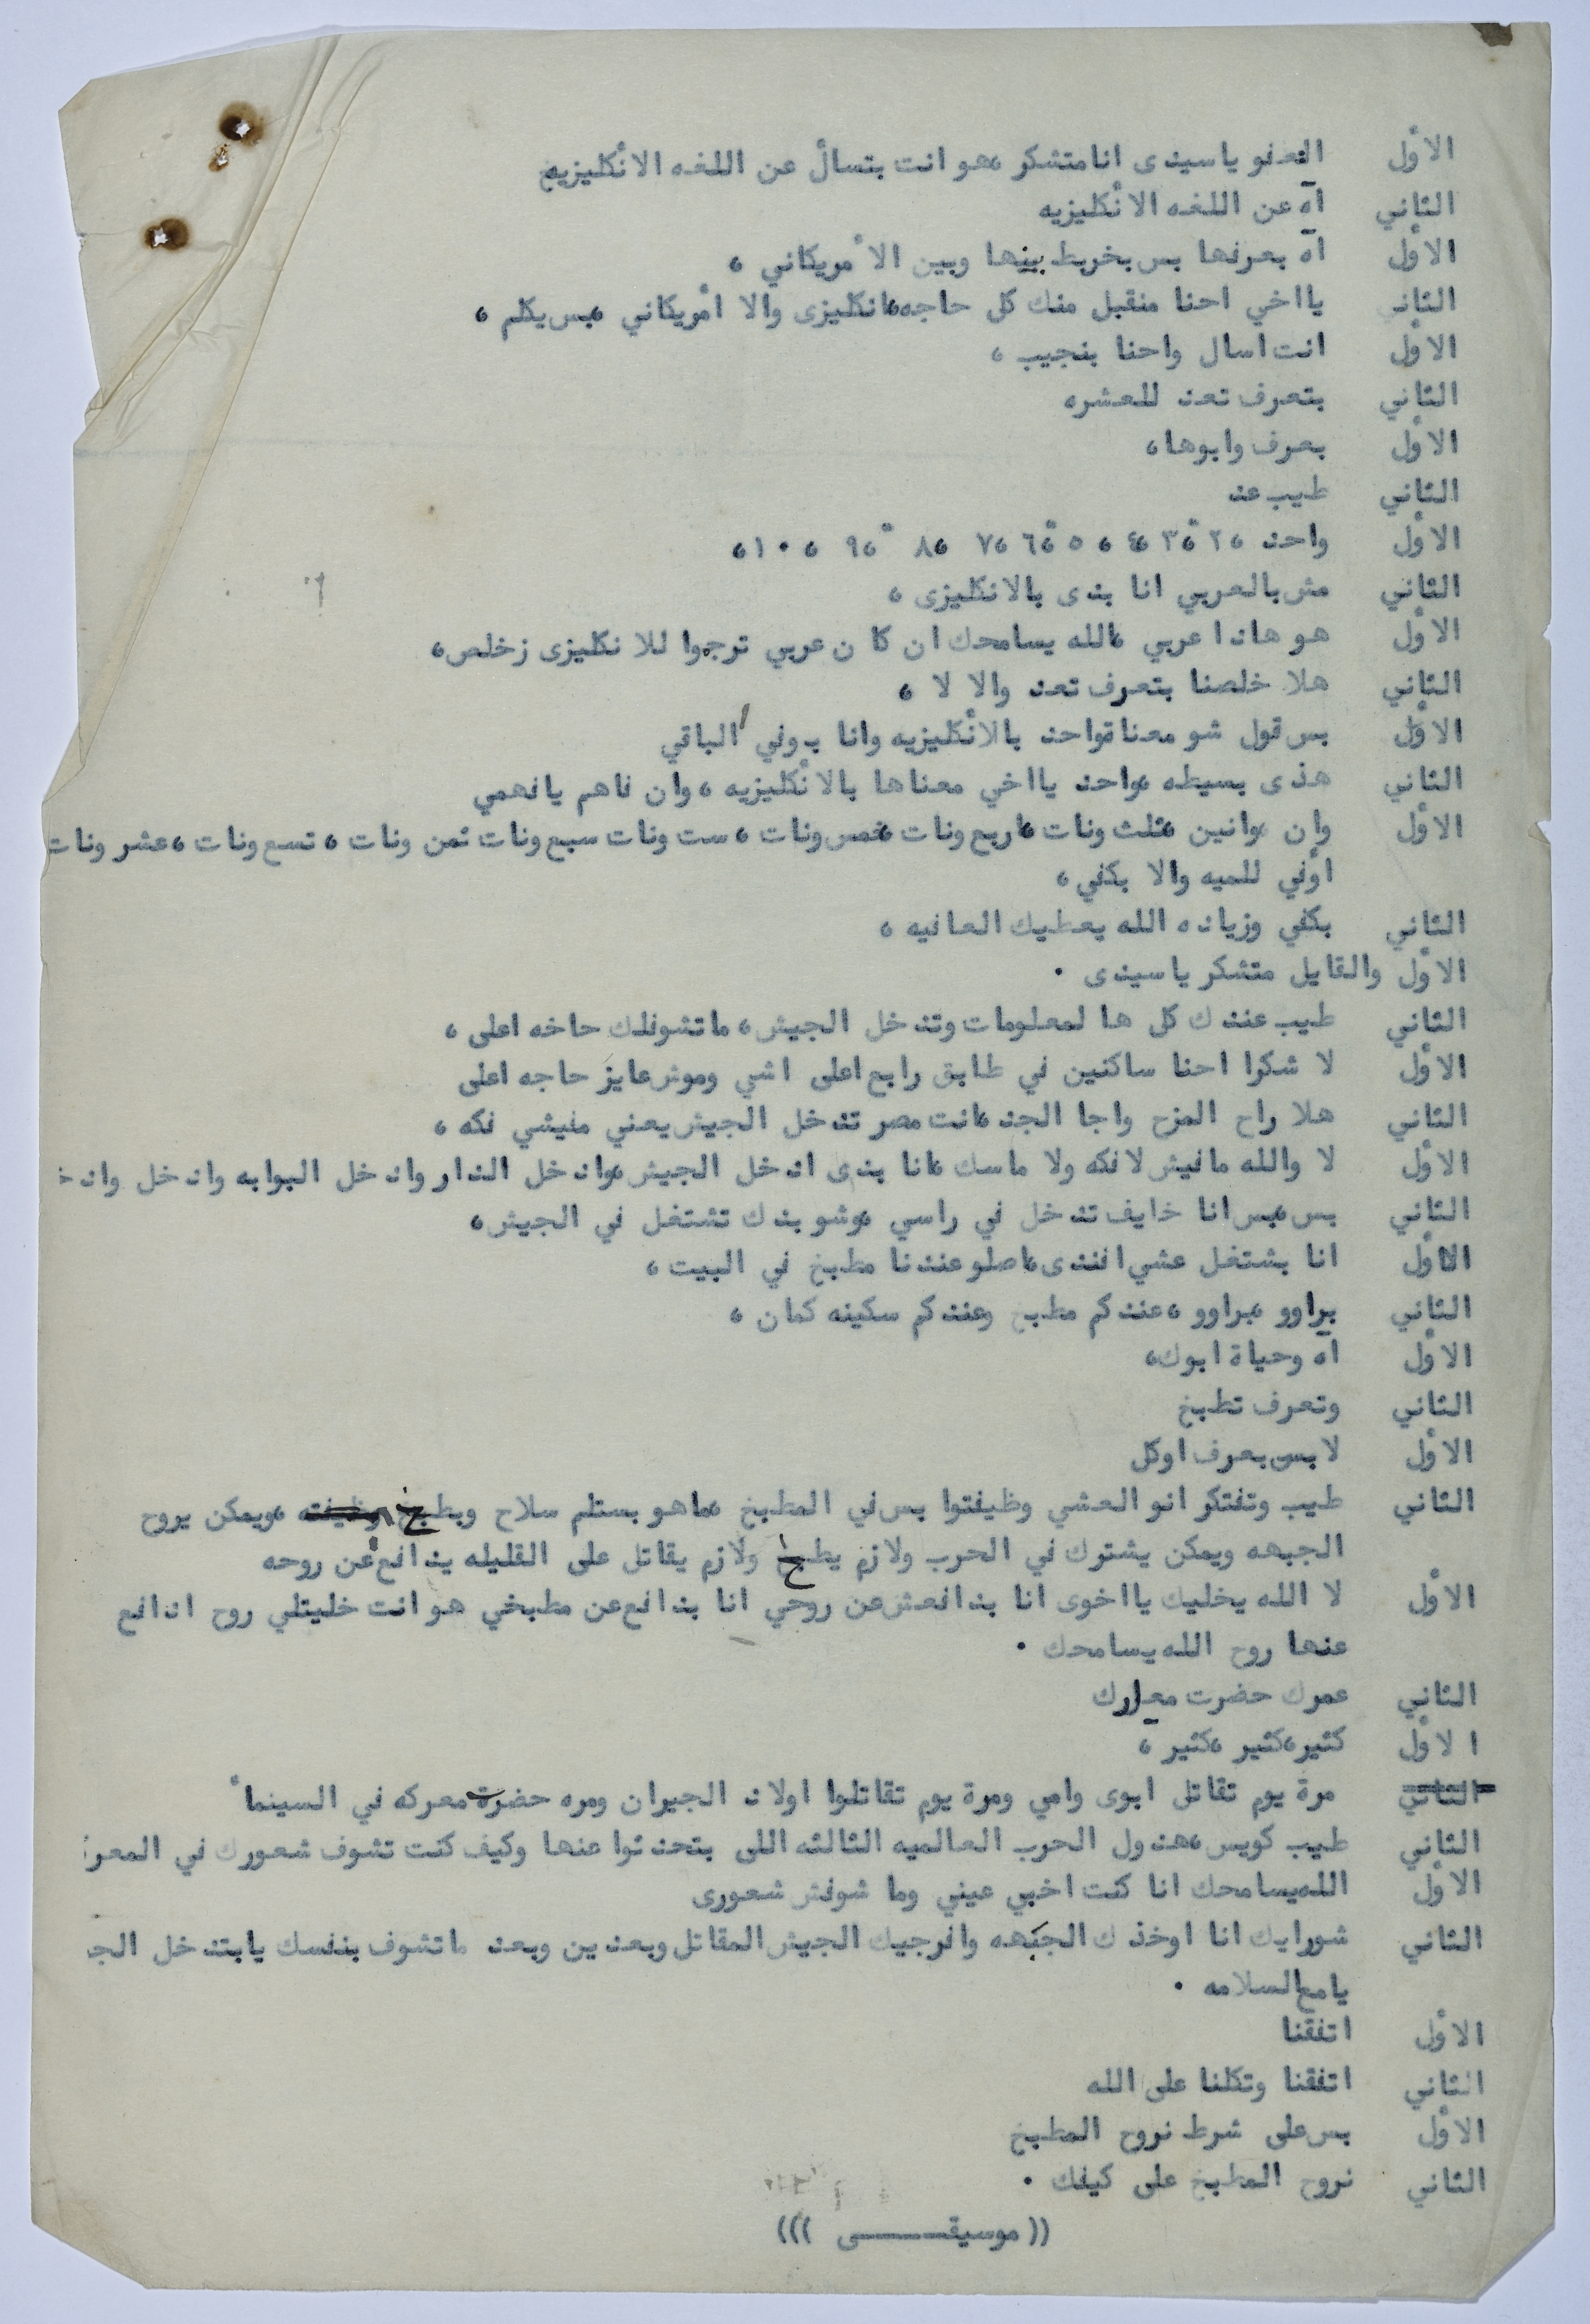 الاول العفو ياسيدى انامتشكر ،هو انت بتسال عن اللغه الانكليزيه
الثاني آه عن اللغه الانكليزيه
الاول آه بعرفها بس بخربط بينها وبين الامريكاني ،
الثاني يااخي احنا منقبل منك كل حاجه،انكليزى والا امريكاني ،بس يكلم ،
الاول انت اسال واحنا بنجيب ،
الثاني بتعرف تعد للعشره
الاول بعرف وابوها،
الثاني طيب عد
الاول واحد ،٢ ،٣ ،٤ ، ٥ ،٦ ،٧ ،٨ ،٩ ، ١٠،
الثاني مش بالعربي انا بدى بالانكليزى ،
الاول هو هادا عربي ،الله يسامحك ان كا ن عربي ترجوا للا نكليزى زخلص،
الثاني هلا خلصنا بتعرف تعد والا لا ،
الاول بس قول شو معناة واحد بالانكليزيه وانا بوفي الباقي
الثاني هذى بسيطه ،واحد يااخي معناها بالانكليزيه ، وان فاهم يافهمي
الاول وان ،وانين ،ثلث ونات ،اربع ونات ،خمس ونات ، ست ونات سبع ونات ثمن ونات ، تسع ونات ،عشر ونات
اوفي للميه والا بكفي ،
الثاني بكفي وزياده الله يعطيك العافيه ،
الاول والقايل متشكر ياسيدى .
الثاني طيب عندك كل ها لمعلومات وتدخل الجيش، ماتشوفلك حاخه اعلى ،
الاول لا شكرا احنا ساكنين في طابق رابع اعلى اشي وموش عايز حاجه اعلى
الثاني هلا راح المزح واجا الجد ،انت مصر تدخل الجيش يعني مفيشي فكه ،
الاول لا والله مافيش لافكه ولا ماسك ،انا بدى ادخل الجيش ،وادخل الدار وادخل البوابه وادخل واد
الثاني بس ،بس انا خايف تدخل في راسي ،وشو بدك تشتغل في الجيش،
الاول انا بشتغل عشي افندى ،اصلو عندنا مطبخ في البيت ،
الثاني براوو ،براوو ،عندكم مطبخ وعندكم سكينه كمان ،
الاول آه وحياة ابوك،
الثاني وتعرف تطبخ
الاول لا بس بعرف اوكل
الثاني طيب وتفتكر انو العشي وظيفتوا بس في المطبخ ،ماهو بستلم سلاح وبطبخ وظيفته ،ويمكن يروح
الجبهه ويمكن يشترك في الحرب ولازم يطبخ ولازم يقاتل على القليله يدافع عن روحه
الاول لا الله يخليك يااخوى انا بدافعش عن روحي انا بدافع عن مطبخي هو انت خليتلي روح ادافع
عنها روح الله يسامحك .
الثاني عمرك حضرت معارك
ا لاول كثير ،كثير ،كثير ،
الثاني مرة يوم تقاتل ابوى وامي ومرة يوم تقاتلوا اولاد الجيران ومره حضرت معركه في السينما
الثاني طيب كويس ،هدول الحرب العالميه الثالثه اللى بتحدثوا عنها وكيف كنت تشوف شعورك في المعر
الاول الله يسامحك انا كنت اخبي عيني وما شوفش شعورى
الثاني شورايك انا اوخذك الجبهه وافرجيك الجيش المقاتل وبعدين وبعد ماتشوف بنفسك يابتدخل الج
يامع السلامه .
الاول اتفقنا
الثاني اتفقنا وتكلنا على الله
الاول بس على شرط نروح المطبخ
الثاني نروح المطبخ على كيفك .
(( موسيقــــــى )))